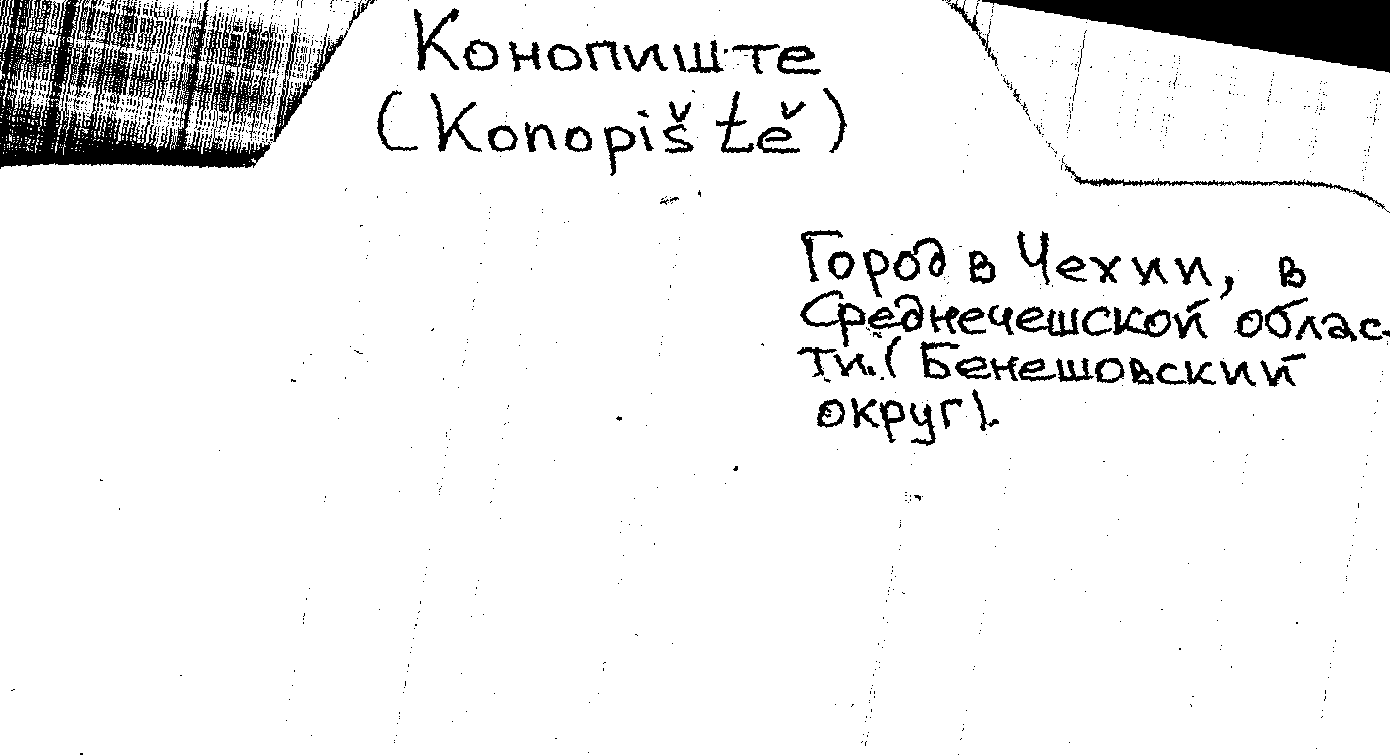 Конопиште
(Konopiště)
Город в Чехии, в
Среднечешской облас-
ти. (Бенешовский
округ).